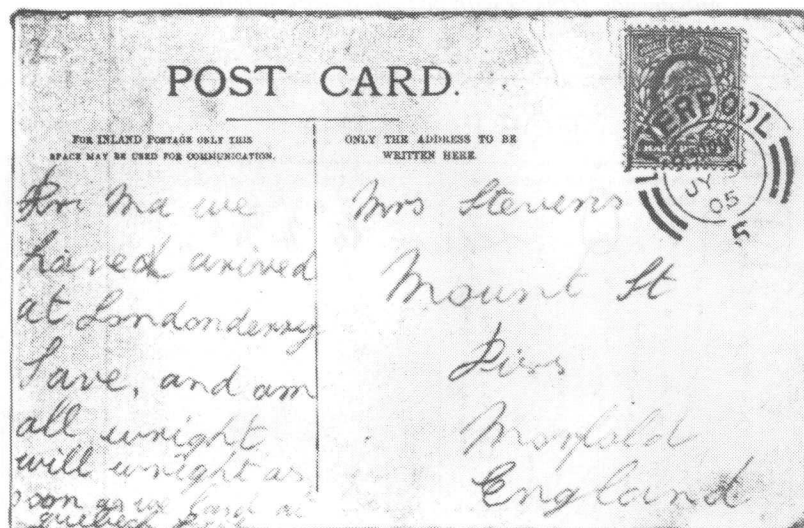 POST CARD.
FOR INLAND POSTAGE ONLY THIS
SPACE MAY BE USED FOR COMMUNICATION.
ONLY THE ADDRESS TO BE
WRITTEN HERE.
LIVERPOOL
JY
05
5
Ma we
haved arived
at Londonderry
save, and am
all wright
will wright as
soon as we land at
quebeck
Mrs Stevens
Mount St
Diss
Norfold
England